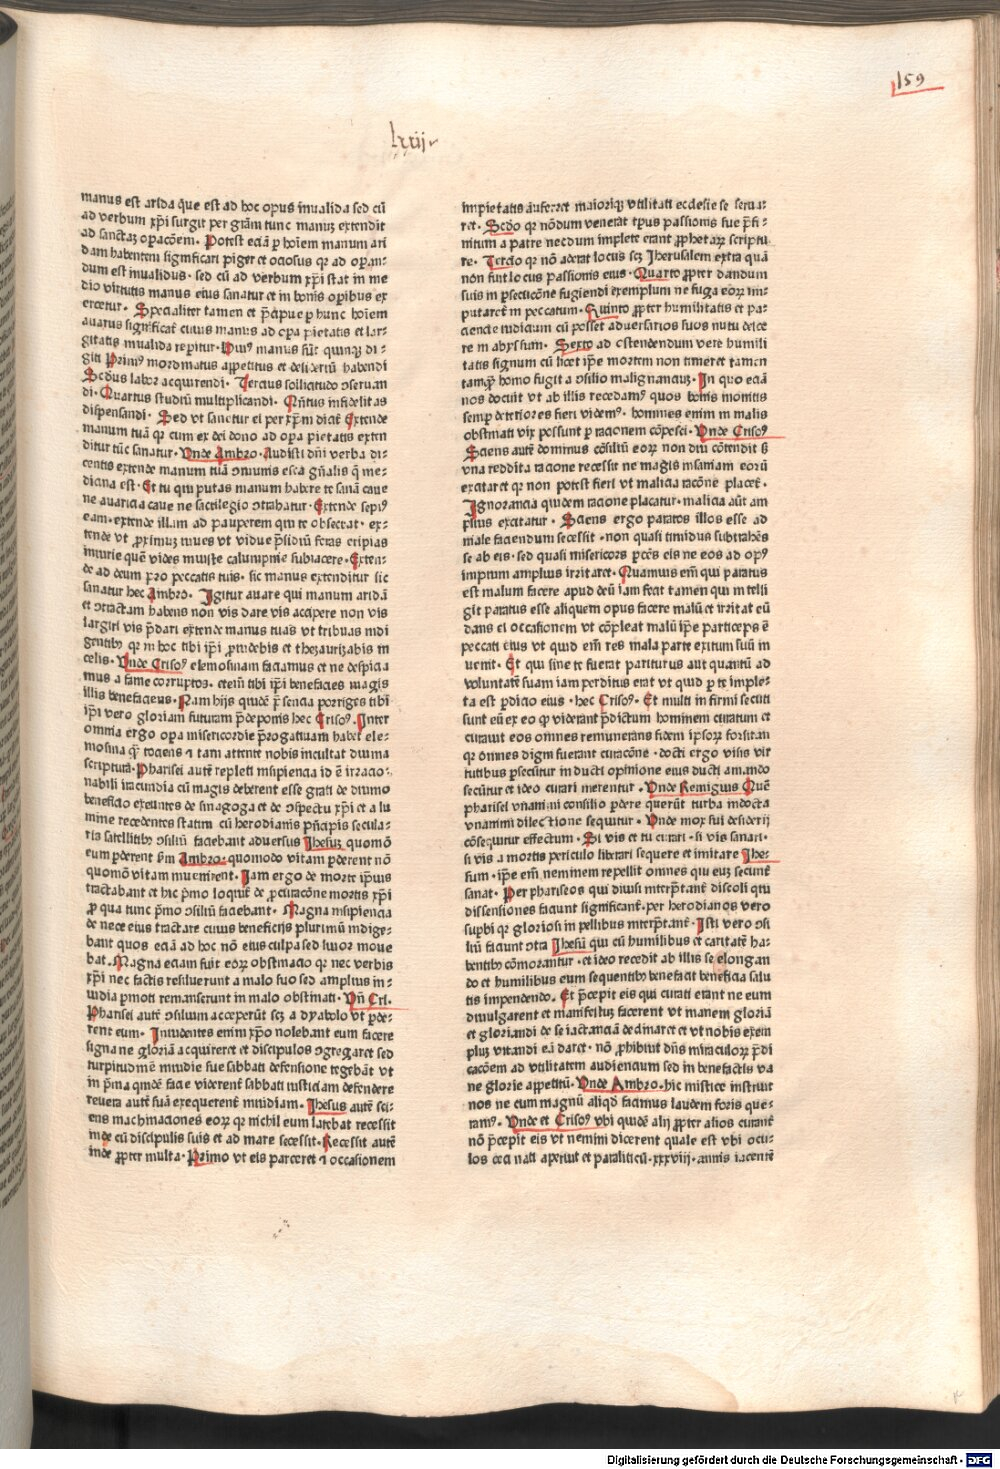 159
lxxij
manus est arida que est ad hoc opus inualida sed cū
ad verbum xp̄i surgit per grām tunc manuʒ extendit
ad sanctaʒ opacōem. Potest eciā ꝑ hoīem manum ari
dam habentem significari piger et ociosus qꝛ ad opan-
dum est inualidus · sed cū ad verbum xp̄i stat in me
dio virtutis manus eius sanatur et in bonis oꝑibus ex
ercetur · Specialiter tamen et p̄cipue ꝑ hunc hoīem
auarus significat̄ cuius manus ad oꝑa pietatis et lar-
gitatis inualida reꝑitur · Huiꝰ manus sūt quinqʒ di-
giti Primꝰ inordinatus appetitus et desideriū habendi
Scd̄us labor acquirendi · Tercius sollicitudo ɔseruan
di · Quartus studiū multiplicandi · Qn̄tus infidelitas
dispensandi · Sed vt sanetur ei per xp̄m dicat̄ Extende
manum tuā qꝛ cum ex dei dono ad oꝑa pietatis exten
ditur tūc sanatur · Vnde Ambro · Audisti dn̄i verba di-
centis extende manum tuā ɔmunis esca gn̄alis q̄ me-
dicina est · Et tu qui putas manum habere te sanā caue
ne auaricia caue ne sacrilegio ɔtrahatur · Extende sepiꝰ
eam · extende illam ad pauperem qui te obsecrat · ex-
tende vt ꝓximuʒ iuues vt vidue p̄sidiū feras eripias
iniurie quē vides iniuste calumpnie subiacere · Exten-
de ad deum ꝓro peccatis tuis · sic manus extenditur sic
sanatur hec Ambro. Igitur auare qui manum aridā
et ɔtractam habens non vis dare vis accipere non vis
largiri vis p̄dari extende manus tuas vt tribuas indi
gentibꝫ qꝛ in hoc tibi ip̄i ꝓuidebis et thezaurizabis in
celis · Vnde Crisoꝰ elemosinam faciamus et ne despicia
mus a fame corruptos · etem̄ tibi ip̄i benefacies magis
illis benefacieus · Nam hijs quidē p̄sencia porriges tibi
ip̄i vero gloriam futuram p̄deponis hec Crisoꝰ · Inter
omnia ergo oꝑa misericordie p̄rogatiuam habet ele-
mosina q̄ tociens ⁊ tam attente nobis incultat diuina
scriptura · Pharisei autē repleti insipiencia id ē irracio-
nabili iracundia cū magis deberent esse grati de diuino
beneficio exeuntes de sinagoga et de ɔspectu xp̄i et a lu
mine recedentes statim cū herodianis p̄ncipis secula-
ris satellitibꝫ ɔsiliū faciebant aduersus Jhesuʒ quomō
eum ꝑderent · s̄m Ambro · quomodo vitam ꝑderent nō
quomō vitam inuenirent · Iam ergo de morte ipius
tractabant et hic p̄mo loquit̄ de ꝓcuracōne mortis xp̄i
ꝓ qua tunc p̄mo ɔsiliū faciebant · Magna insipiencia
de nece eius tractare cuius beneficijs plurimū indige-
bant quos eciā ad hoc nō eius culpa sed liuor moue
bat · Magna eciam fuit eoꝝ obstinacio qꝛ nec verbis
xp̄i nec factis resiluerunt a malo suo sed amplius in-
uidia ꝑmoti remanserunt in malo obstinati · Vn̄ Cri.
Pharisei autē ɔsilium acceperūt scʒ a dyabolo vt ꝑde-
rent eum · Inuidentes enim xp̄o nolebant eum facere
signa ne gloriā acquireret et discipulos ɔgregaret sed
turpitudinē inuidie sue sabbati defensione tegebāt vt
in p̄ma quidē facie viderent̄ sabbati iusticiam defendere
reuera autē suā exequerent̄ inuidiam · Jhesus autē sci-
ens machinaciones eoꝝ qꝛ nichil eum latebat recessit
inde cū discipulis suis et ad mare secessit · Recessit autē
inde ꝓpter multa · Primo vt eis parceret ⁊ occasionem
impietatis auferret maioriqʒ vtilitati ecclesie se serua-
ret · Scd̄o qꝛ nōdum venerat tp̄us passionis sue p̄fi-
nitum a patre necdum implete erant ꝓphetaꝝ scriptu
re · Tercio qꝛ nō aderat locus scʒ Jherusalem extra quā
non fuit locus passionis eius · Quarto ꝓpter dandum
suis in ꝑsecucōne fugiendi exemplum ne fuga eoꝝ im-
putaret̄ in peccatum · Quinto ꝓpter humilitatis et pa-
ciencie iudicium cū posset aduersarios suos nutu deice
re in abyssum · Sexto ad ostendendum vere humili
tatis signum cū licet ip̄e mortem non timeret tamen
tamqʒ homo fugit a ɔsilio malignanciuʒ · In quo eciā
nos docuit vt ab illis recedamꝰ quos bonis monitis
semꝑ deteriores fieri videmꝰ · homines enim in malis
obstinati vix possunt ꝑ racionem cōpesci · Vnde Crisoꝰ
Sciens autē dominus cōsiliū eoꝝ non diu cōtendit s̄
vna reddita racione recessit ne magis insaniam eorū
excitaret qꝛ non potest fieri vt malicia racōne placet̄ ·
Ignorancia quidem racione placatur · malicia aūt am
plius excitatur · Sciens ergo paratos illos esse ad
male faciendum secessit · non quasi timidus subtrahēs
se ab eis · sed quasi misericors ꝑcēs eis ne eos ad opꝰ
impium amplius irritaret · Quamuis em̄ qui paratus
est malum facere apud deū iam fecit tamen qui intelli
git paratus esse aliquem opus facere malū et irritat eū
dans ei occasionem vt cōpleat malū ip̄e particeps ē
peccati eius vt quid em̄ res mala parte exitum suū in
uenit · Et qui sine te fuerat pariturus aut quantū ad
voluntatē suam iam perditus erat vt quid ꝑ te imple-
ta est ꝑdicio eius · hec Crisoꝰ · Et multi infirmi secuti
sunt eū ex eo ꝙ viderant p̄dictum hominem curatum et
curauit eos omnes remunerans fidem ipsoꝝ forsitan
qꝛ omnes digni fuerant curacōne · docti ergo visis vir
tutibus ꝑsecūtur inducti opinione eius ducti amando
secūtur et ideo curari merentur · Vnde Remigius Quē
pharisei vnanimi consilio ꝑdere querūt turba indocta
vnanimi dilectione sequitur · Vnde mox sui desiderij
cōsequitur effectum · Si vis et tu curari · si vis sanari ·
si vis a mortis periculo liberari sequere et imitare Jhe-
sum · ip̄e em̄ neminem repellit omnes qui euʒ secunt̄
sanat · Per phariseos qui diuisi interp̄tant̄ discoli qui
dissensiones faciunt significant̄ · per herodianos vero
suꝑbi qꝛ gloriosi in pellibus interp̄tant̄ · Isti vero ɔsi
liū faciunt ɔtra Jhesū qui cū humilibus et caritatē ha-
bentibꝫ cōmorantur · et ideo recedit ab illis se elongan
do et humilibus eum sequentibꝫ benefacit beneficia salu
tis impendendo. Et p̄cepit eis qui curati erant ne eum
diuulgarent et manifestuʒ facerent vt inanem gloriā
et gloriandi de se iactanciā declinaret et vt nobis exem
pluʒ vitandi eā daret · nō ꝓhibuit dn̄s miraculoꝝ p̄di
cacōem ad vtilitatem audiencium sed in benefactis va
ne glorie appetitū · Vnde Ambro · hic mistice instruit
nos ne cum magnū aliqd̄ facimus laudem foris que-
ramꝰ · Vnde et Crisoꝰ vbi quidē alij ꝓpter alios curant̄
nō p̄cepit eis vt nemini dicerent quale est vbi ocu-
los ceci nati aperiut et paraliticū · xxxviij · annis iacentē
Digitalisierung gefördert durch die Deutsche Forschungsgemeinschaft - DFG